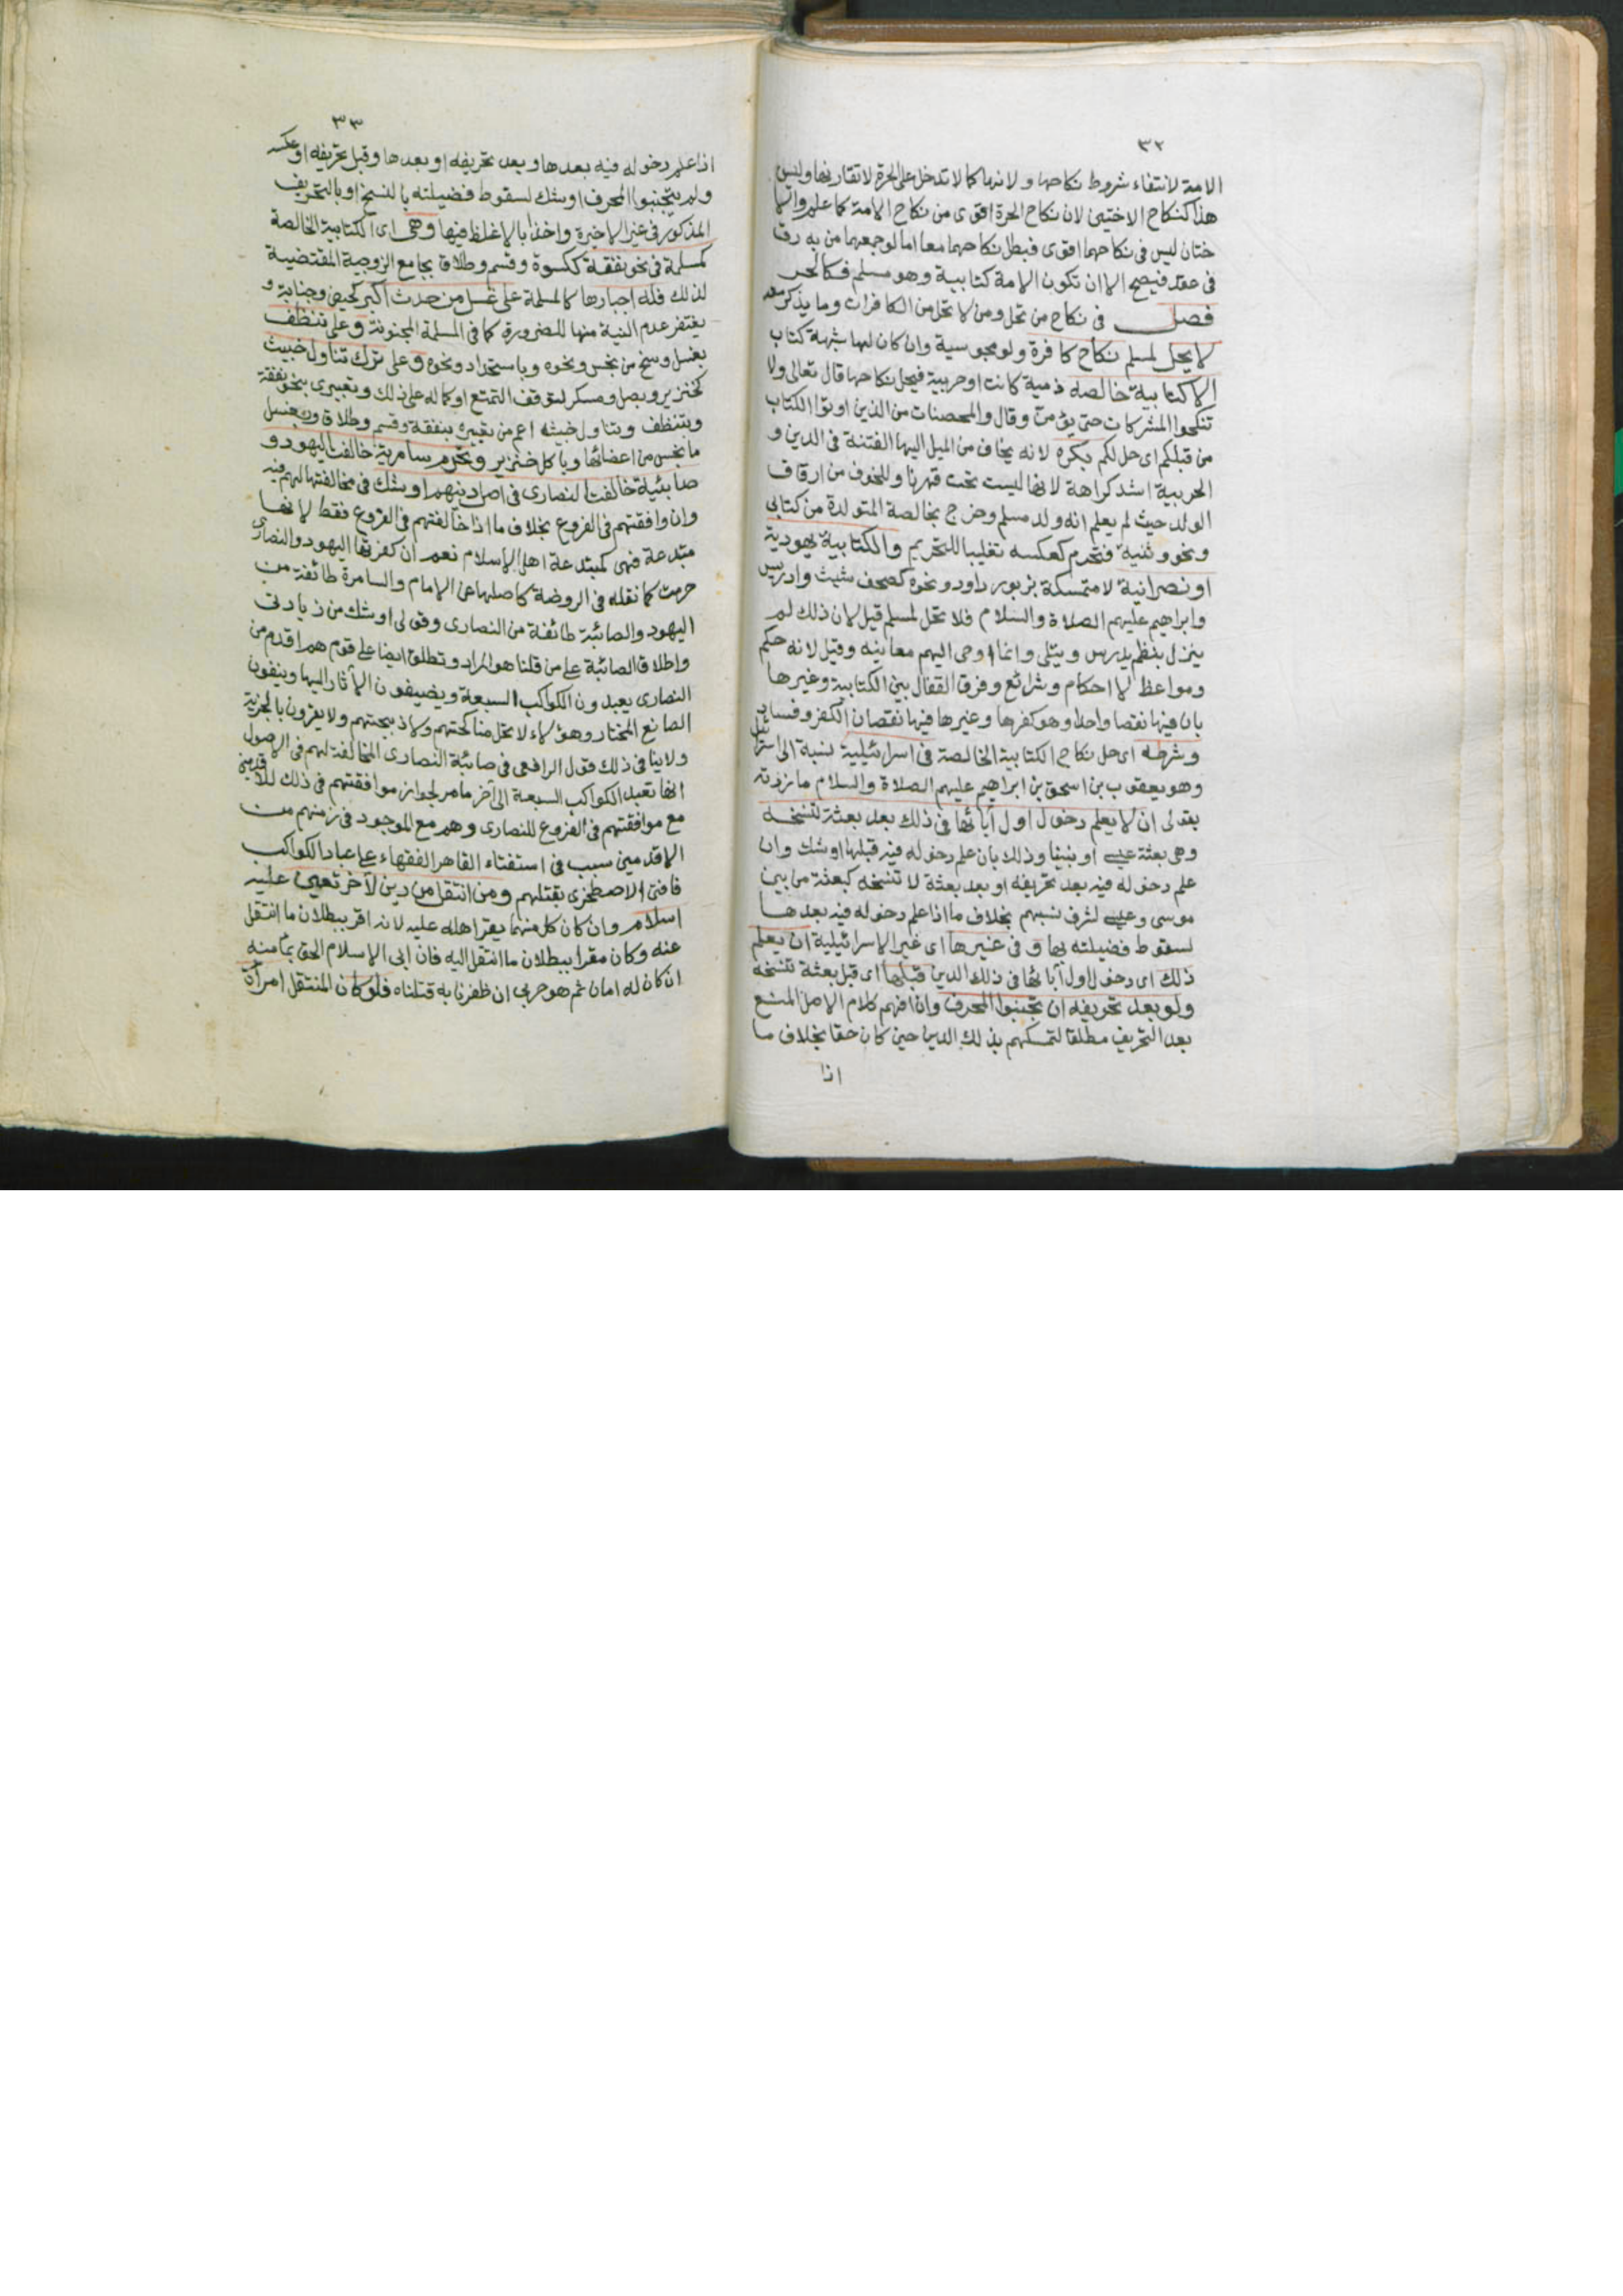 ٣٢
الامة لانتفاء شروط نكاحها ولانها كما لا تدخل على الحرة لا تقارنها وليس
هذا كنكاح الاختين لان نكاح الحرة اقوى من نكاح الامة كما علم والا
ختان ليس فى نكاحهما اقوى فبطل نكاحهما معا اما لو جمعهما من به رق
فى عقد فيصح الا ان تكون الامة كتابية وهو مسلم فكالحر
فصل فى نكاح من تحل ومن لا تحل من الكافرات وما يذكر معه
لا يحل لمسلم نكاح كافرة ولو مجوسية وان كان لها شبهة كتاب
الا كتابية خالصه ذمية كانت او حربية فيحل نكاحها قال تعالى ولا
تنكحوا المشركات حتى يؤمن وقال والمحصنات من الذين اوتوا الكتاب
من قبلكم اى حل لكم بكره لانه يخاف من الميل اليها الفتنة فى الدين و
الحربية اشد كراهة لانها ليست تحت قهرنا وللخوف من ارقاق
الولد حيث لم يعلم انه ولد مسلم وخرج بخالصة المتولدة من كتابى
ونحو وثنية فتحرم كعكسه تغليبا للتحريم والكتابية يهودية
او نصرانية لا متمسكة بزبور داود ونحوه كصحف شيث وادريس
وابراهيم عليهم الصلاة والسلام فلا تحل لمسلم قيل لان ذلك لم
ينزل بنظم يدرس ويتلى وانما اوحى اليهم معانيه وقيل لانه حكم
ومواعظ لا احكام وشرائع وفرق القفال بين الكتابية وغيرها
بان فيها نقصا واحدا وهو كفرها وغيرها فيها نقصان الكفر وفساد
وشرطه اى حل نكاح الكتابية الخالصة فى اسرائيلية نسبة الى اسرائيل
وهو يعقوب بن اسحق بن ابراهيم عليهم الصلاة والسلام ما زدته
بقولى ان لا يعلم دخول اول آبائها فى ذلك بعد بعثة تنسخه
وهى بعثة عيسى او نبينا وذلك بان علم دخوله فيه قبلها او شك وان
علم دخوله فيه بعد تحريفه او بعد بعثة لا تنسخه كبعثة من بين
موسى وعيسى لشرف نسبهم بخلاف ما اذا علم دخوله فيه بعدها
لسقوط فضيلته بها و فى غيرها اى غير الاسرائيلية ان يعلم
ذلك اى دخول اول آبائها فى ذلك الدين قبلها اى قبل بعثة تنسخه
ولو بعد تحريفه ان تجنبوا المحرف وان افهم كلام الاصل المنع
بعد التحريف مطلقا لتمسكهم بذلك الدين حين كان حقا بخلاف ما
اذا
٣٣
اذا علم دخوله فيه بعدها وبعد تحريفه او بعدها وقبل تحريفه او عكسه
ولم يتجنبوا المحرف او شك لسقوط فضيلته بالنسخ او بالتحريف
المذكور فى غير الاخيرة واخذا بالاغلظ فيها وهى اى الكتابية الخالصة
كمسلمة فى نحو نفقة ككسوة وقسم وطلاق بجامع الزوجية المقتضية
لذلك فله اجبارها كالمسلمة على غسل من حدث اكبر كحيض وجنابة و
يغتفر عدم النية منها للضرورة كما فى المسلمة المجنونة وعلى تنظف
بغسل وسخ من نجس ونحوه وباستحداد ونحوه وعلى ترك تناول خبيث
كخنزير وبصل ومسكر لتوقف التمتع او كماله على ذلك وتعبيرى بنحو نفقة
وبتنظف وبتناول خبيث اعم من تعبيره بنفقة وقسم وطلاق وبغسل
ما نجس من اعضائها وباكل خنزير وتحرم سامرية خالفت اليهود و
صابئية خالفت النصارى فى اصل دينهم او شك فى مخالفتها لهم فيه
وان وافقتهم فى الفروع بخلاف ما اذا خالفتهم فى الفروع فقط لانها
مبتدعة فهى كمبتدعة اهل الاسلام نعم ان كفرتها اليهود والنصارى
حرمت كما نقله فى الروضة كاصلها عن الامام والسامرة طائفة من
اليهود والصائبة طائفة من النصارى وقولى او شك من زيادتى
واطلاق الصائبة على من قلنا هو المراد وتطلق ايضا على قوم هم اقدم من
النصارى يعبدون الكواكب السبعة ويضيفون الآثار اليها وينفون
الصانع المختار وهؤلاء لا تحل مناكحتهم ولا ذبيحتهم ولا يقرون بالجزية
ولا ينافى ذلك قول الرافعى فى صائبة النصارى المخالفة لهم فى الاصول
انها تعبد الكواكب السبعة الى آخر ما مر لجواز موافقتهم فى ذلك للاقدمين
مع موافقتهم فى الفروع للنصارى وهم مع الموجود فى زمنهم من
الاقدمين سبب فى استفتاء القاهر الفقهاء على عباد الكواكب
فافتى الاصطخرى بقتلهم ومن انتقل من دين لآخر تعين عليه
اسلام وان كان كل منهما يقر اهله عليه لانه اقر ببطلان ما انتقل
عنه وكان مقرا ببطلان ما انتقل اليه فان ابى الاسلام الحق بمأمنه
ان كان له امان ثم هو حربى ان ظفرنا به قتلناه فلو كان المنتقل امرأة